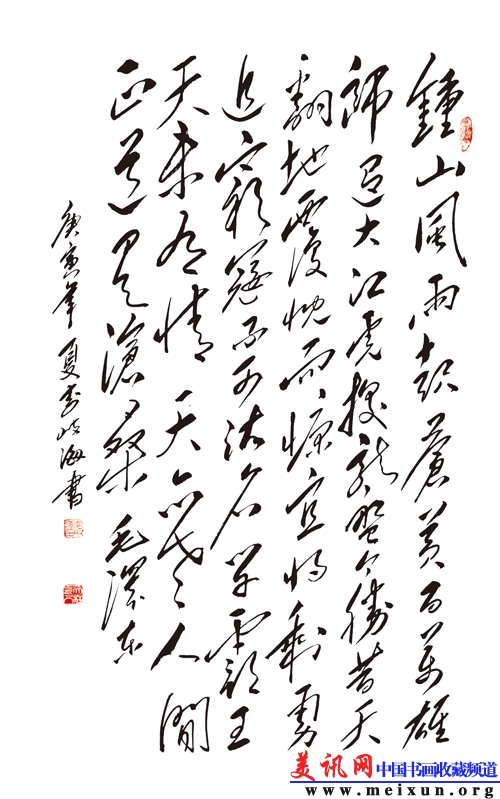 鍾山風雨起蒼黃百萬雄
師過大江虎踞龍盤今勝昔天
翻地覆慨而慷宜將剩勇
追窮寇不可沽名學霸王
天若有情天亦老人間
正道是滄桑 毛澤東
庚寅年夏李岐海書
美讯网 中国书画收藏频道
www.meixun.org